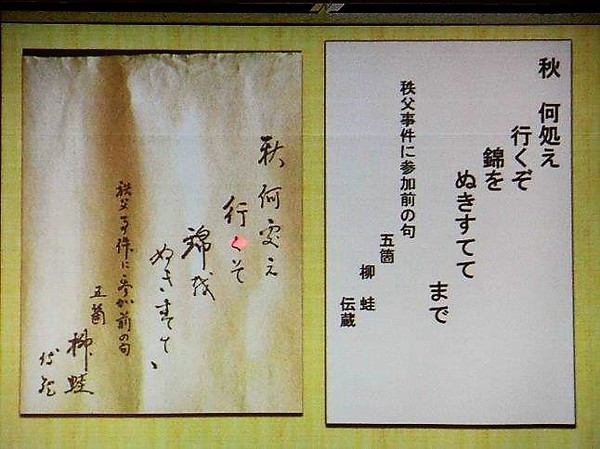 秋 何処え
行くぞ
錦を
ぬきすてて
まで
秩父事件に参加前の句
五箇
柳 蛙
伝蔵
秋 何処え
行くそ
錦を
ぬきすてゝ
秩父事件に参加前の句
五箇
柳蛙
伝蔵